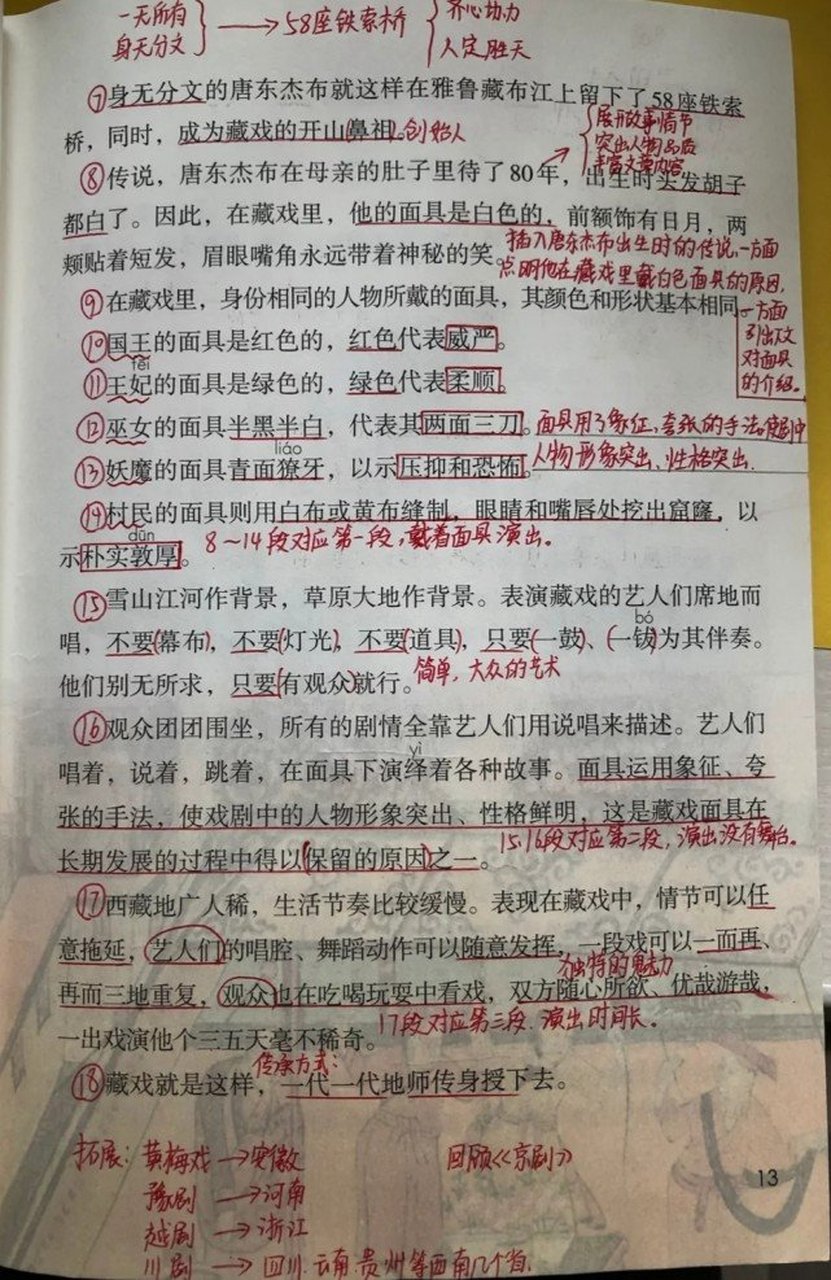 一无所有
身无分文
→58座铁索桥
齐心协力
人定胜天
⑦身无分文的唐东杰布就这样在雅鲁藏布江上留下了58座铁索
桥，同时，成为藏戏的开山鼻祖。创始人
展开故事情节
突出人物品质
丰富文章内容
⑧传说，唐东杰布在母亲的肚子里待了80年，出生时头发胡子
都白了。因此，在藏戏里，他的面具是白色的，前额饰有日月，两
颊贴着短发，眉眼嘴角永远带着神秘的笑。
插入唐东杰布出生时的传说，一方面
点明他在藏戏里戴白色面具的原因，
⑨在藏戏里，身份相同的人物所戴的面具，其颜色和形状基本相同。
一方面
引出下文
对面具
的介绍。
⑩国王的面具是红色的，红色代表威严。
fēi
⑪王妃的面具是绿色的，绿色代表柔顺。
⑫巫女的面具半黑半白，代表其两面三刀。
面具用了象征、夸张的手法。使剧中
人物形象突出、性格突出.
liáo
⑬妖魔的面具青面獠牙，以示压抑和恐怖。
⑭村民的面具则用白布或黄布缝制，眼睛和嘴唇处挖出窟窿，以
dūn
示朴实敦厚。
8～14段对应第一段，戴着面具演出。
⑮雪山江河作背景，草原大地作背景。表演藏戏的艺人们席地而
bó
唱，不要(幕布)，不要(灯光)，不要(道具)，只要(一鼓)、(一钹)为其伴奏。
他们别无所求，只要(有观众)就行。
简单，大众的艺术
⑯观众团团围坐，所有的剧情全靠艺人们用说唱来描述。艺人们
yì
唱着，说着，跳着，在面具下演绎着各种故事。面具运用象征、夸
张的手法，使戏剧中的人物形象突出、性格鲜明，这是藏戏面具在
长期发展的过程中得以(保留的原因)之一。
15.16段对应第二段，演出没有舞台。
⑰西藏地广人稀，生活节奏比较缓慢。表现在藏戏中，情节可以任
意拖延，艺人们的唱腔、舞蹈动作可以随意发挥，一段戏可以一而再、
独特的魅力
再而三地重复，观众也在吃喝玩耍中看戏，双方随心所欲、优哉游哉，
一出戏演他个三五天毫不稀奇。
17段对应第三段.演出时间长。
传承方式：
⑱藏戏就是这样，一代一代地师传身授下去。
拓展：黄梅戏→安徽
回顾《京剧》
豫剧→河南
越剧→浙江
川剧→四川.云南.贵州等西南几个省.
13